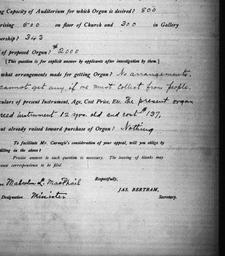 ng Capacity of Auditorium for which Organ is desired? 800
rising 500 on floor of Church and 300 in Gallery
bership? 343
of proposed Organ? $2000
[This question is for explicit answer by applicants after investigation by them.]
what arrangements made for getting Organ? No arrangements.
cannot get any, if we must collect from people.
culars of present Instrument, Age, Cost Price, Etc. The present organ
reed instrument 12 years old and cost $137.
unt already raised toward purchase of Organ? Nothing
To facilitate Mr. Carnegie's consideration of your appeal, will you oblige by
filling in the above?
Precise answer to each question is necessary. The leaving of blanks may
correspondence to be filed.
Respectfully,
Malcolm L. MacPhail
JAS. BERTRAM,
Designation Minister
Secretary.